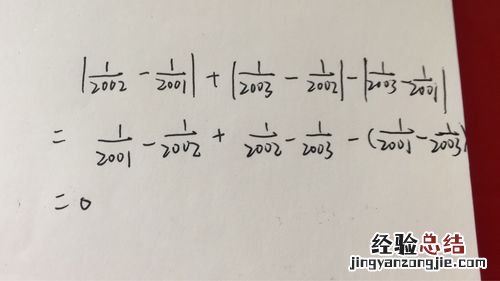 |1/2002 - 1/2001| + |1/2003 - 1/2002| - |1/2003 - 1/2001|
= 1/2001 - 1/2002 + 1/2002 - 1/2003 - (1/2001 - 1/2003)
= 0
经验总结
jingyanzongjie.com